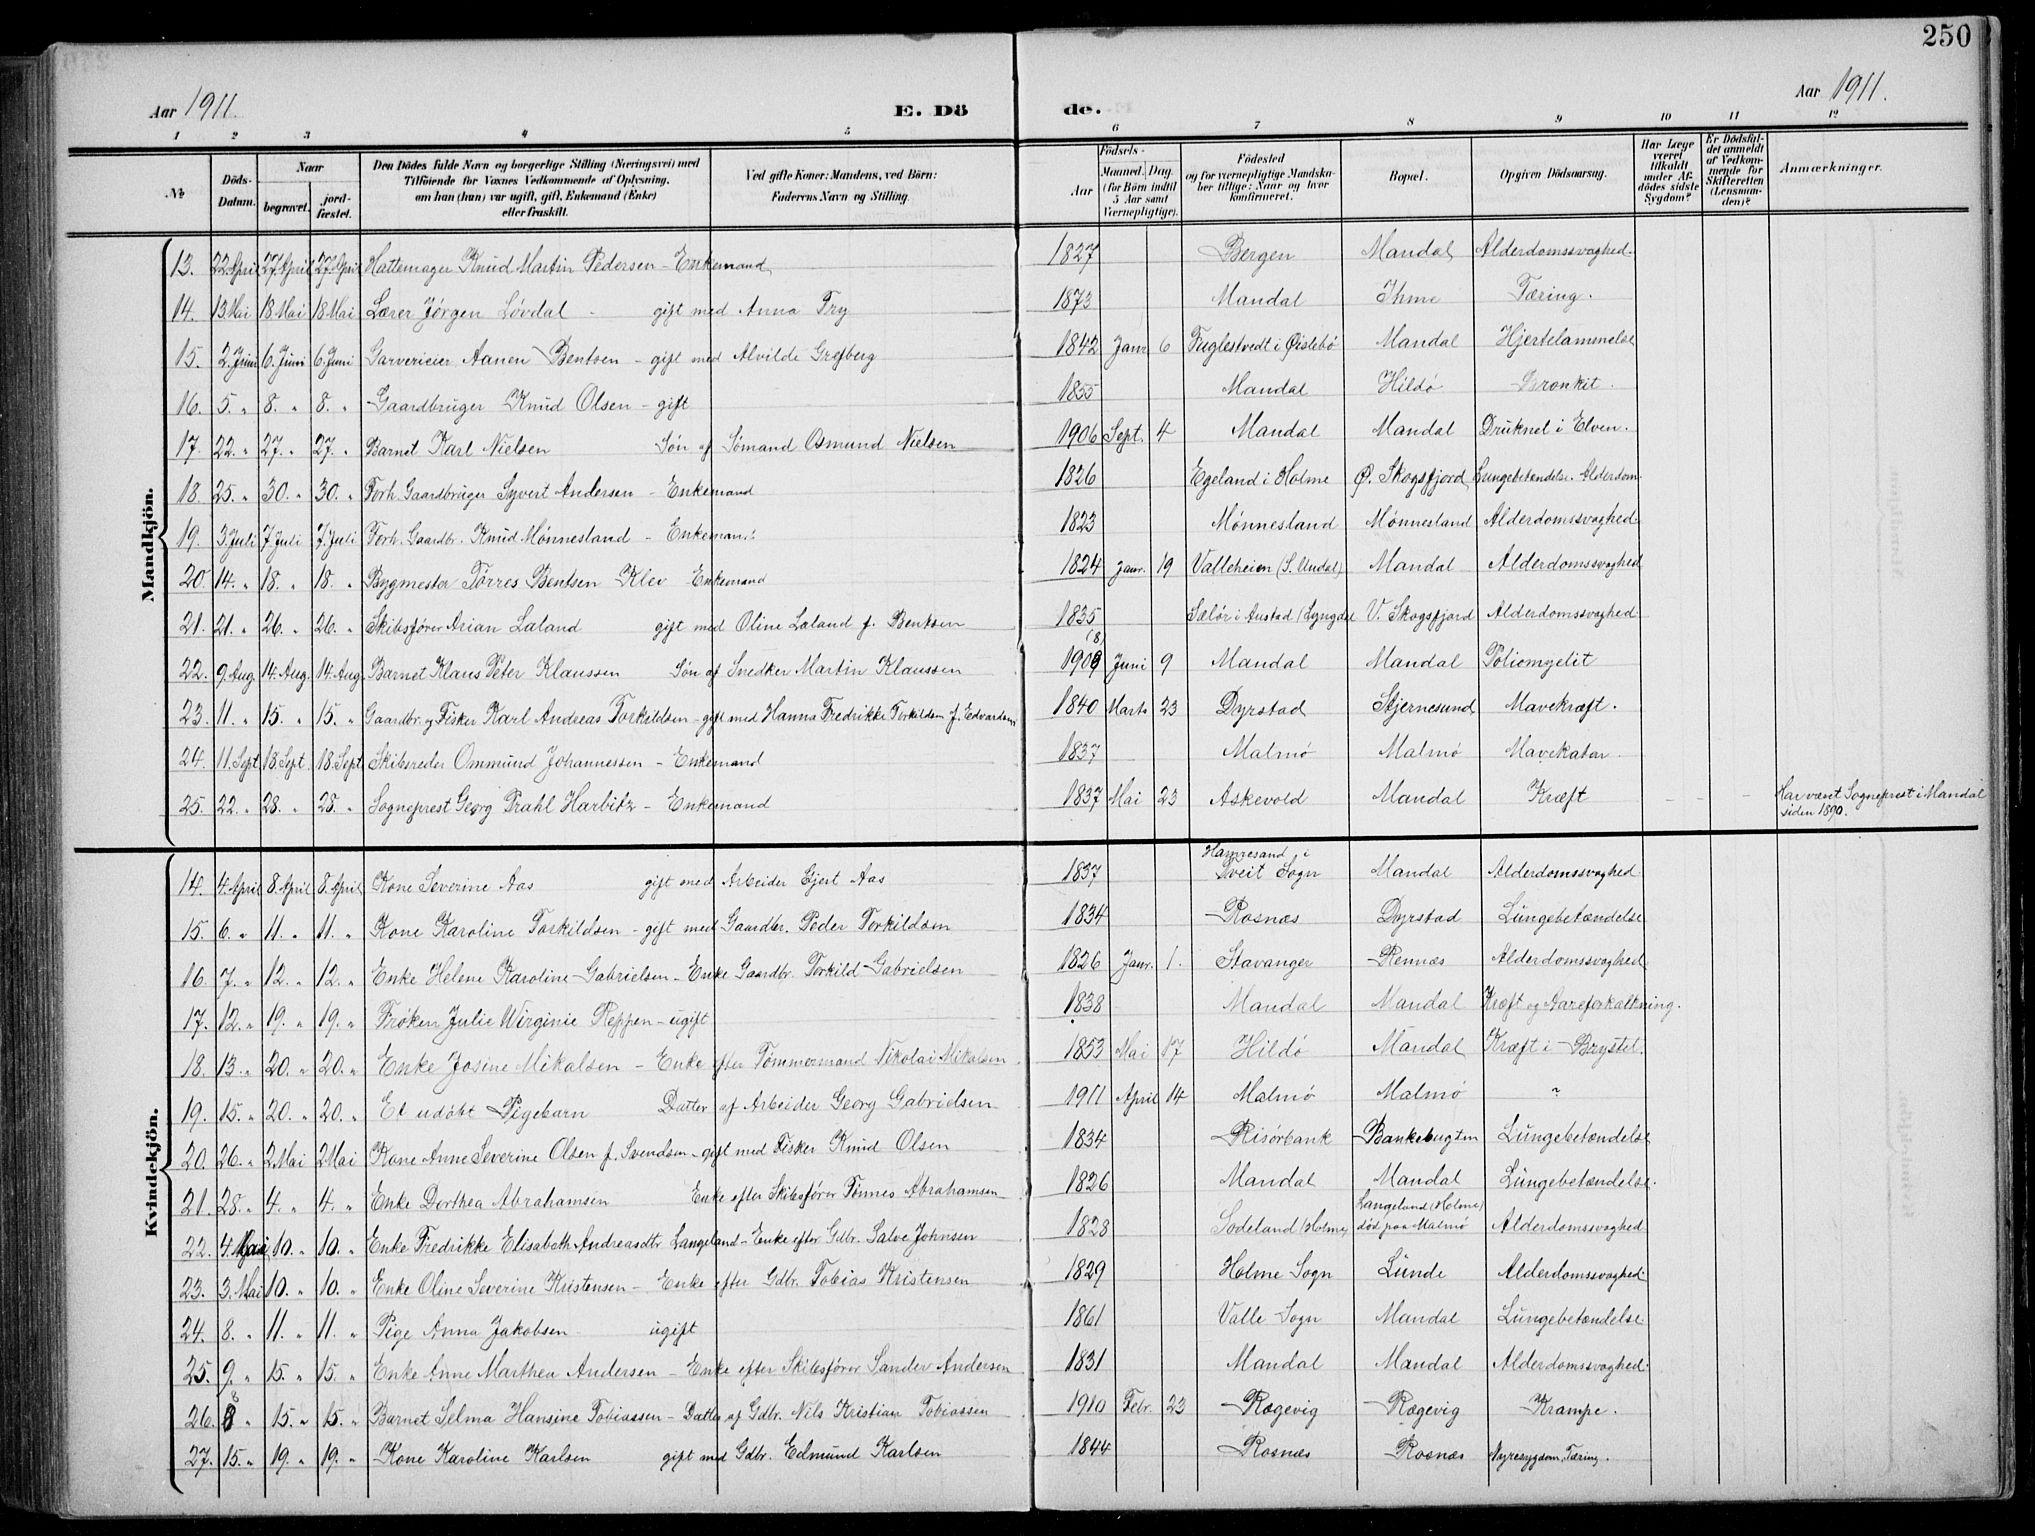 250
Aar 1911. E. Dö de. Aar 1911.
1 2 3 4 5 6 7 8 9 10 11 12
No
Döds-Datum.
Naar begravet. jordfæstet.
Den Dödes fulde Navn og borgerlige Stilling (Næringsvei) med
Tilföiende for Voxnes Vedkommende af Oplysning,
om han (hun) var ugift, gift, Enkemand (Enke)
eller fraskilt.
Ved gifte Koner: Mandens, ved Börn:
Faderens Navn og Stilling.
Födsels- Aar Maaned. Dag. (for Börn indtil 5 Aar samt Værnepligtige).
Födested
og for værnepligtige Mandskaber tillige: Naar og hvor
konfirmeret.
Bopæl.
Opgiven Dödsaarsag.
Har Læge været tilkaldt under Afdödes sidste Sygdom?
Er Dödsfaldet anmeldt af Vedkommende for Skifteretten (Lensmanden)?
Anmærkninger.
Mandkjön.
13. 22 April 27 April 27 April Hattemager Knud Martin Pedersen - Enkemand 1827 Bergen Mandal Alderdomssvaghed.
14. 13 Mai 18 Mai 18 Mai Lærer Jørgen Løvdal - gift med Anna Fry 1873 Mandal Ihme Tæring.
15. 2. Juni 6. Juni 6. Juni Garverieier Aanen Bentsen - gift med Alvilde Grefberg 1842 Janr 6 Fuglestvedt i Øislebø Mandal Hjertelammelse
16. 5. " 8. " 8. " Gaardbruger Knud Olsen - gift 1855 Mandal Hildø Bronkit.
17. 22. " 27. " 27. " Barnet Karl Nielsen Søn af Sømand Osmund Nielsen 1906 Sept. 4 Mandal Mandal Druknet i Elven.
18. 25. " 30. " 30. " Forh. Gaardbruger Syvert Andersen - Enkemand 1826 Egeland i Holme Ø. Skogsfjord Lungebetændelse. Alderdom
19. 3. Juli 7 Juli 7. Juli Forh. Gaardbr. Knud Mønnesland - Enkemand 1823 Mønnesland Mønnesland Alderdomssvaghed
20. 14. " 18. " 18. " Bygmester Tørres Bentsen Klev Enkemand 1824 Janr. 19 Valleheien (S. Undal) Mandal Alderdomssvaghed
21. 21. " 26. " 26. " Skibsfører Arian Laland gift med Oline Laland f. Bentsen 1835 Sælør i Austad (Lyngdal V. Skogsfjord Alderdomssvaghed
22. 9. Aug. 14. Aug. 14. Aug. Barnet Klaus Peter Klaussen Søn af Snedker Martin Klaussen 1909 (8) Juni 9 Mandal Mandal Poliomyelit
23. 11. " 15. " 15. " Gaardbr. og Fisker Karl Andreas Torkildsen - gift med Hanna Fredrikke Torkildsen f. Edvardsen 1840 Marts 23 Dyrstad Skjernesund Mavekræft.
24. 11. Sept 18. Sept. 18. Sept Skibsreder Ommund Johannessen - Enkemand 1837 Malmø Malmø Mavekatar.
25. 22. " 28. " 28. " Sogneprest Georg Prahl Harbitz - Enkemand 1837 Mai 23 Askevold Mandal Kræft - - - Har været Sogneprest i Mandal
siden 1890.
Kvindekjön.
14. 4. April 8. April 8. April Kone Severine Aas gift med Arbeider Ejert Aas 1837 Hamresand i Tveit Sogn Mandal Alderdomssvaghed
15. 6. " 11. " 11. " Kone Karoline Torkildsen - gift med Gaardbr. Peder Torkildsen 1834 Rosnæs Dyrstad Lungebetændelse
16. 7. " 12. " 12. " Enke Helene Karoline Gabrielsen - Enke Gaardbr. Torkild Gabrielsen 1826 Janr. 1. Stavanger Rennæs Alderdomssvaghed
17. 12. " 19. " 19. " Frøken Julie Wirginie Reppen - ugift 1838 Mandal Mandal Kræft og Aareforkalkning.
18. 13. " 20. " 20. " Enke Josine Mikalsen - Enke efter Tømmermand Nikolai Mikalsen 1853 Mai 17 Hildø Mandal Kræft i Brystet.
19. 15. " 20. " 20. " Et udøbt Pigebarn Datter af Arbeider Georg Gabrielsen 1911 April 14 Malmø Malmø ?
20. 26. " 2 Mai 2 Mai Kone Anne Severine Olsen f. Svendsen - gift med Fisker Knud Olsen 1834 Risørbank Bankebugten Lungebetændelse
21. 28. " 4. " 4. " Enke Dorthea Abrahamsen Enke efter Skibsfører Tønnes Abrahamsen 1826 Mandal Mandal Lungebetændelse.
22. 4. Mai 10. " 10. " Enke Fredrikke Elisabeth Andreasdtr Langeland - Enke efter Gdbr. Salve Johnsen 1828 Sodeland (Holme) Langeland (Holme) død paa Malmø Alderdomssvaghed
23. 3. Mai 10. " 10. " Enke Oline Severine Kristensen - Enke efter Gdbr. Tobias Kristensen 1829 Holme Sogn Lunde Alderdomssvaghed
24. 8. " 11. " 11. " Pige Anna Jakobsen - ugift 1861 Valle Sogn Mandal Lungebetændelse
25. 9. " 15. " 15. " Enke Anne Marthea Andersen - Enke efter Skibsfører Sander Andersen 1831 Mandal Mandal Alderdomssvaghed
26. 8 " 15. " 15. " Barnet Selma Hansine Tobiassen - Datter af Gdbr. Nils Kristian Tobiassen 1910 Febr. 23 Rægevig Rægevig Krampe.
27. 15. " 19. " 19. " Kone Karoline Karlsen gift med Gdbr. Edmund Karlsen 1844 Rosnæs Rosnæs Nyresygdom, Tæring.